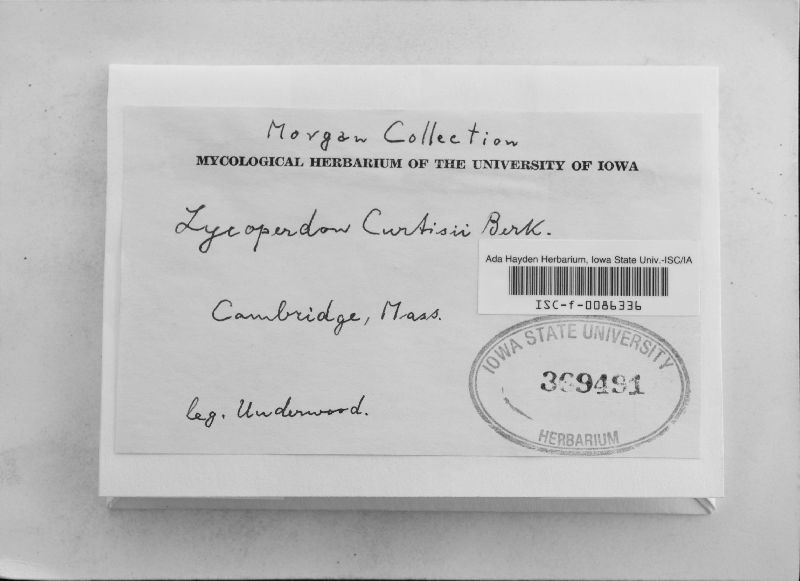 Morgan Collection
MYCOLOGICAL HERBARIUM OF THE UNIVERSITY OF IOWA
Lycoperdon Curtisii Berk.
Ada Hayden Herbarium, Iowa State Univ.-ISC/IA
ISC-f-0086336
Cambridge, Mass.
IOWA STATE UNIVERSITY
369491
HERBARIUM
leg. Underwood.